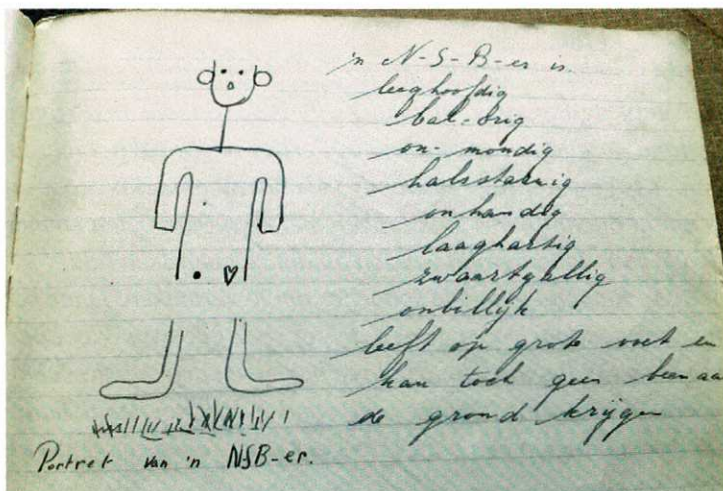 'n N-S-B-er is.
leeghoofdig
bal-orig
on-mondig
halsstarrig
onhandig
laaghartig
zwaartgallig
onbillijk
leeft op grote voet en
kan toch geen been aa
de grond krijgen
Portret van 'n NSB-er.